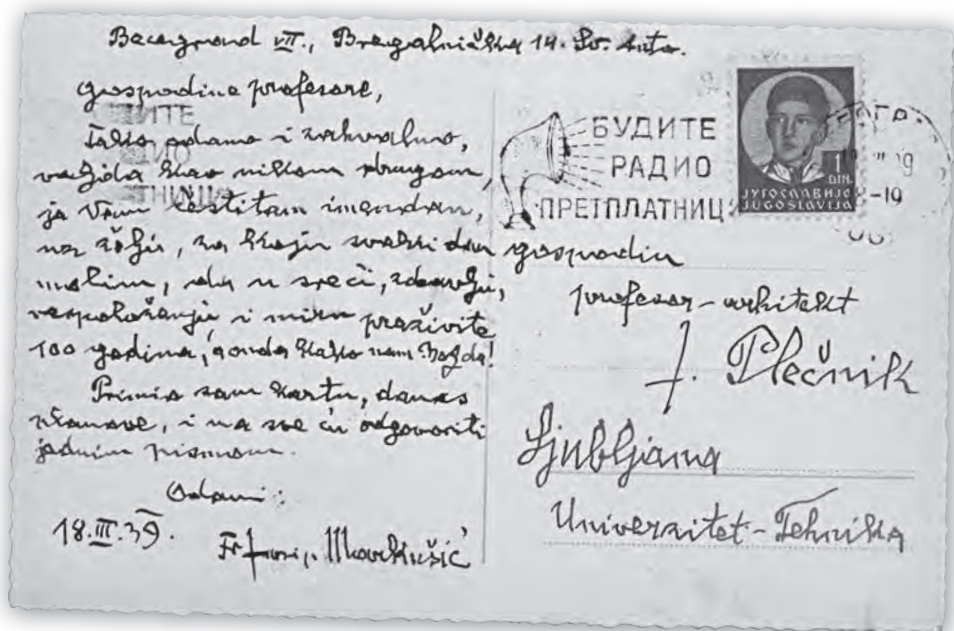 Beograd VII., Bregalnička 14. Sv. Anto.
Gospodine profesore,
Tako odamo i zahvalno,
valjda kao nikom drugom,
ja Vam čestitam imendan,
uz želju, za koju svaki dan
molim, da u sreći, zdravlju,
raspoloženju i miru proživite
100 godina, a onda kako nam Bog da!
Primio sam kartu, danas
planove, i na sve ću odgovoriti
jednim pismom.
Odani:
18.III.39.
Fr. Josip Markušić
БУДИТЕ
РАДИО
ПРЕТПЛАТНИЦ
1
DIN.
ЈУГОСЛАВИЈА
JUGOSLAVIJA
-19
gospodin
profesor-arhitekt
J. Plečnik
Ljubljana
Univerzitet-Tehnika